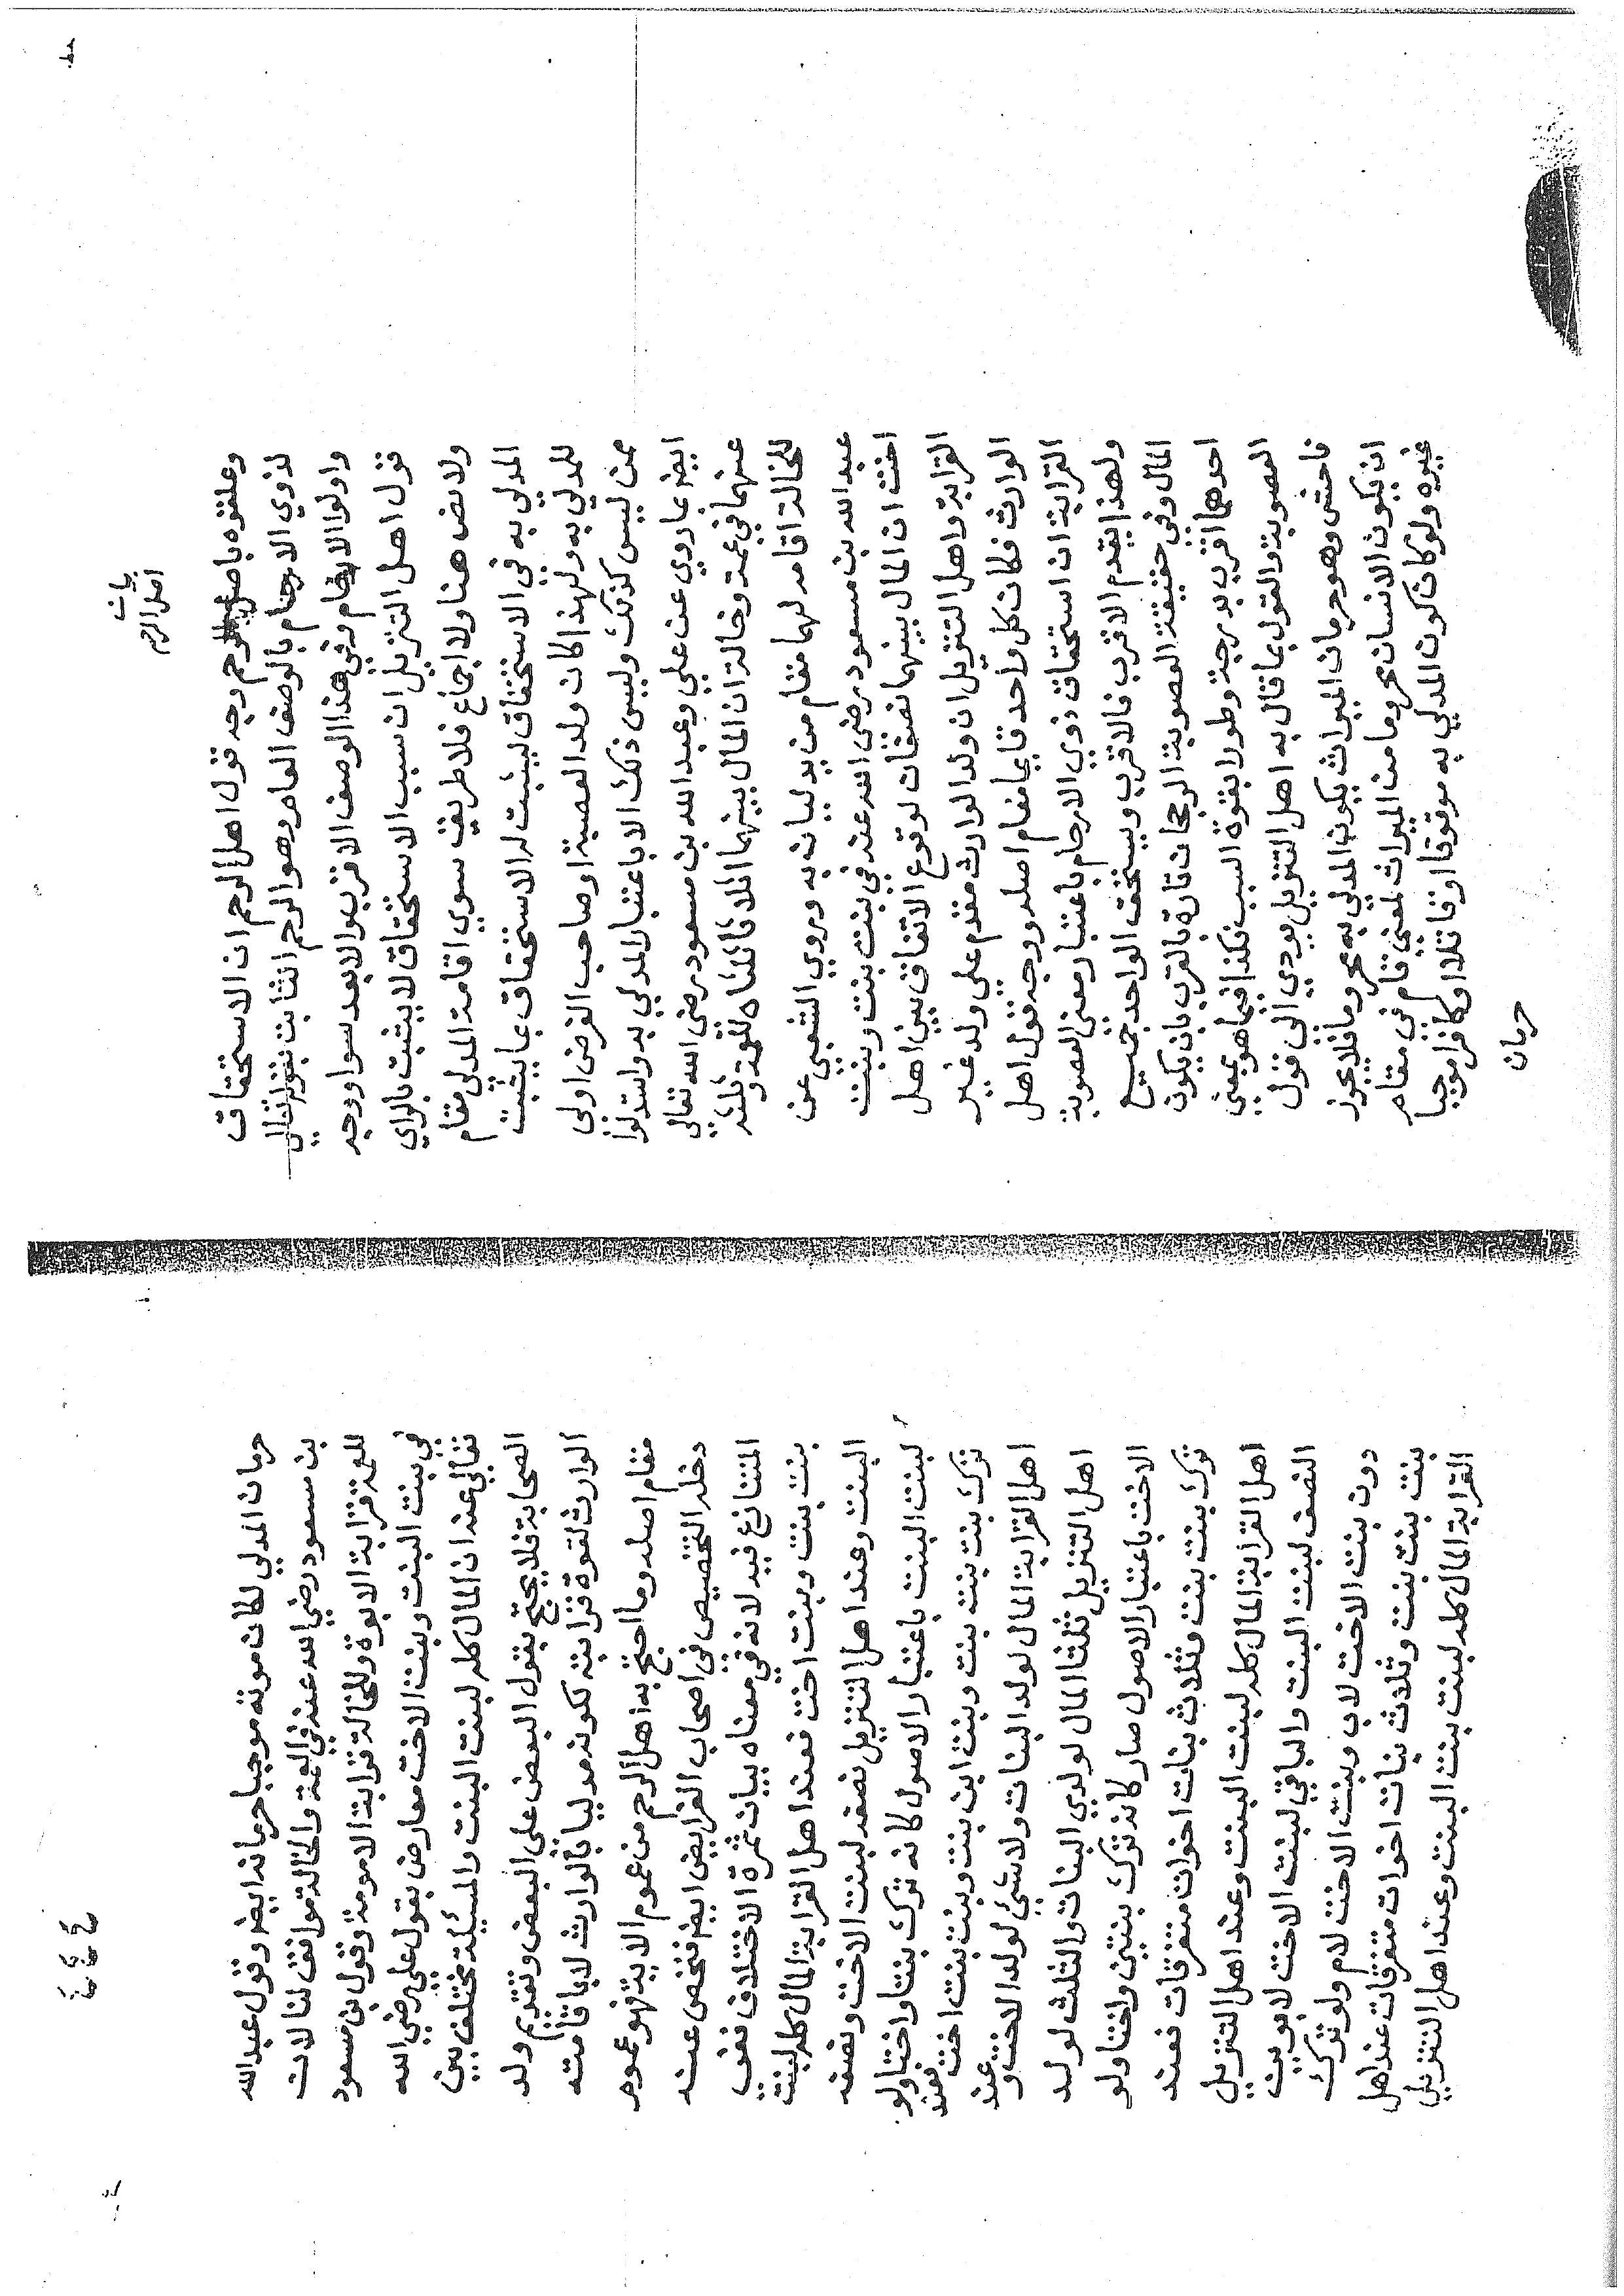 بيان
اصل الرحم
وعلقوه باصل الرحم وجه قول اهل الرحم ان الاستحقاق
لذوي الارحام بالوصف العام وهو الرحم انثا بت بقوله تعالى
واولوا الارحام وفي هذا الوصف الاقرب والابعد سوا ووجه
قول اهل التنزيل ان سبب الاستحقاق لا يثبت بالراي
ولا نص هنا ولا اجماع فلا طريق سوي اقامة المدلي مقام
المدلي به في الاستحقاق ليثبت له الاستحقاق بما يثبت
للمدلي به ولهذا كان ولد العصبة او صاحب الفرض اولى
ممن ليس كذلك وليس ذلك الا باعتبار المدلي به واستدلوا
ايضا بما روي عن علي وعبد الله بن مسعود رضى الله تعالى
عنهما في عمة وخالة ان المال بينهما اثلاثا ثلثاه للعمة وثلثه
للخالة اقامة لهما مقام من يدليان به وروي الشعبي عن
عبد الله بن مسعود رضى الله عنه في بنت بنت وبنت
اخت ان المال بينهما نصفان لوقوع الاتفاق بين اهل
القرابة واهل التنزيل ان ولد الوارث مقدم على ولد غير
الوارث فكان كل واحد قايما مقام اصله ووجه قول اهل
القرابة ان استحقاق ذوي الارحام باعتبار معنى العصوبة
ولهذا يقدم الاقرب فالاقرب ويستحق الواحد جميع
المال وفي حقيقة العصوبة الرجحان تارة بالقرب بان يكون
احدهما اقرب بدرجة وطورا بقوة السبب فكذا فيما هو بمعنى
العصوبة والقول بما قال به اهل التنزيل يودي الى قول
فاحش وهو حرمان الميراث بكون المدلي به محروما فلا يجوز
ان يكون الانسان محروما من الميراث لمعنى قام في مقام
غيره ولو كان كون المدلي به موقوفا او قاتلا او كافرا موجبا
حرمان
حرمان المدلي لكان موته موجبا حرمانه ايضا وقول عبد الله
بن مسعود رضي الله عنه في العمة والخالة موافق لنا لان
للعمة قرابة الابوة وللخالة قرابة الامومة وقول بن مسعود
في بنت البنت وبنت الاخت معارض بقول علي رضي الله
تعالي عنه ان المال كله لبنت البنت والمسئلة مختلف بين
الصحابة فلا يحتج بقول البعض على البعض وتقديم ولد
الوارث لقوة قرابته لكونه مدليا بالوارث لا باقامته
مقام اصله وما احتج به اهل الرحم من عموم الاية فهو عموم
دخله التخصيص في اصحاب الفرايض ايضا فنخص عنه
المتنازع فيه لانه في معناه بيان ثمرة الاختلاف ففي
بنت بنت وبنت اخت فعند اهل القرابة المال كله لبنت
البنت وعند اهل التنزيل نصفه لبنت الاخت ونصفه
لبنت البنت باعتبار الاصول كانه ترك بنتا واختا ولو
ترك بنت بنت وبنت ابن بنت وبنت بنت اخت فعند
اهل القرابة المال لولد البنات ولا شئ لولد الاخت وعند
اهل التنزيل ثلثا المال لولدي البنات والثلث لولد
الاخت باعتبار الاصول صار كانه ترك بنتين واختا ولو
ترك بنت بنت وثلاث بنات اخوات متفرقات فعند
اهل القرابة المال كله لبنت البنت وعند اهل التنزيل
النصف لبنت البنت والباقي لبنت الاخت لابوين
دون بنت الاخت لاب وبنت الاخت لام ولو ترك
بنت بنت بنت وثلاث بنات اخوات متفرقات عند اهل
القرابة المال كله لبنت بنت البنت وعند اهل التنزيل